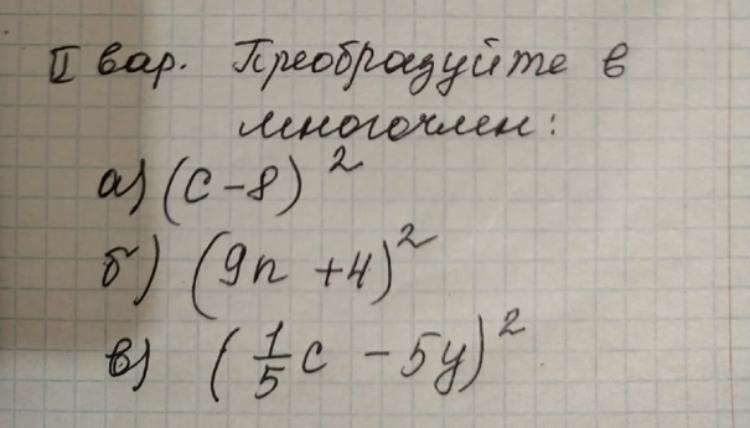 II вар. Преобразуйте в
многочлен:
а) (c - 8)²
б) (9n + 4)²
в) (1/5 c - 5y)²